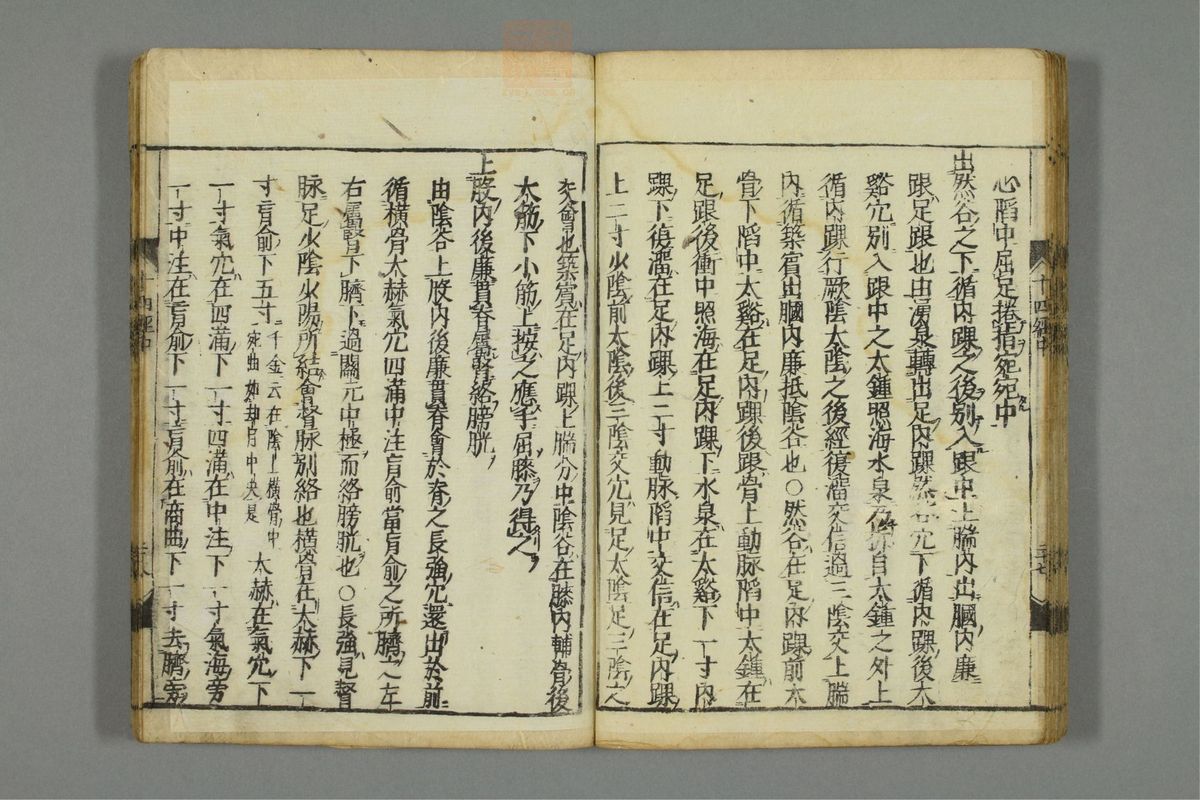 心陷中屈足捲指宛宛中
出然谷之下循内踝之後別入跟中上腨内出膕内廉
跟足跟也由湧泉轉出足内踝然谷穴下循内踝後太
谿穴別入跟中之太鍾照海水泉乃折自太鍾之外上
循内踝行厥陰太陰之後經復溜交信過三陰交上腨
内循築賓出膕内廉抵陰谷也○然谷在足内踝前大
骨下陷中太谿在足内踝後跟骨上動脉陷中太鍾在
足跟後衝中照海在足内踝下水泉在太谿下一寸内
踝下復溜在足内踝上二寸動脉陷中交信在足内踝
上二寸少陰前太陰後三陰交穴見足太陰足三陰之
交會也築賓在足内踝上腨分中陰谷在膝内輔骨後
大筋下小筋上按之應手屈膝乃得之
上股内後廉貫脊屬腎絡膀胱
由陰谷上股内後廉貫脊會於脊之長強穴還出於前
循横骨大赫氣穴四滿中注肓俞當肓俞之所臍之左
右屬腎下臍下過關元中極而絡膀胱也○長強見督
脉足少陰少陽所結會督脉別絡也横骨在大赫下一
寸肓俞下五寸千金云在陰上横骨中宛曲如却月中央是大赫在氣穴下
一寸氣穴在四滿下一寸四滿在中注下一寸氣海旁
一寸中注在肓俞下一寸肓俞在商曲下一寸去臍旁
十四經中